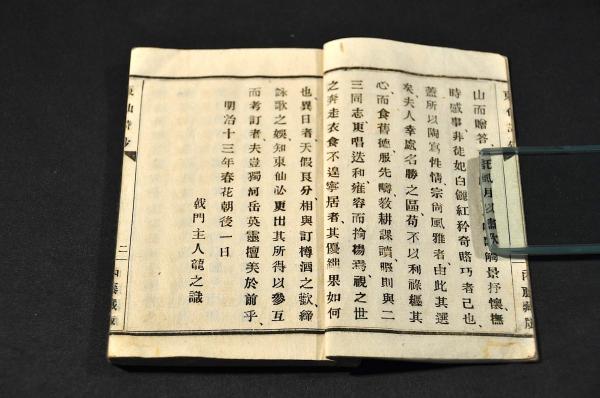 山而贈答
風月以盡歡
景抒懷、撫
時感事、非徒妃白儷紅、矜奇賭巧者己也、
蓋所以陶寫性情、宗尚風雅者、由此其選
矣、夫人幸處名勝之區、苟不以利祿纒其
心、而食舊德、服先疇、教耕課讀、暇則與二
三同志、更唱迭和、雍容而揄揚焉、視之世
之奔走衣食、不遑寧居者、其優絀果如何
也、異日者、天假良分、相與訂樽酒之歡、締
詠歌之娛、知東仙必更出其所得、以參互
而考訂者、夫豈獨河岳英靈、擅美於前乎、
明治十三年春花朝後一日
戟門主人龍之識
東仙詩鈔
二
内藤藏版